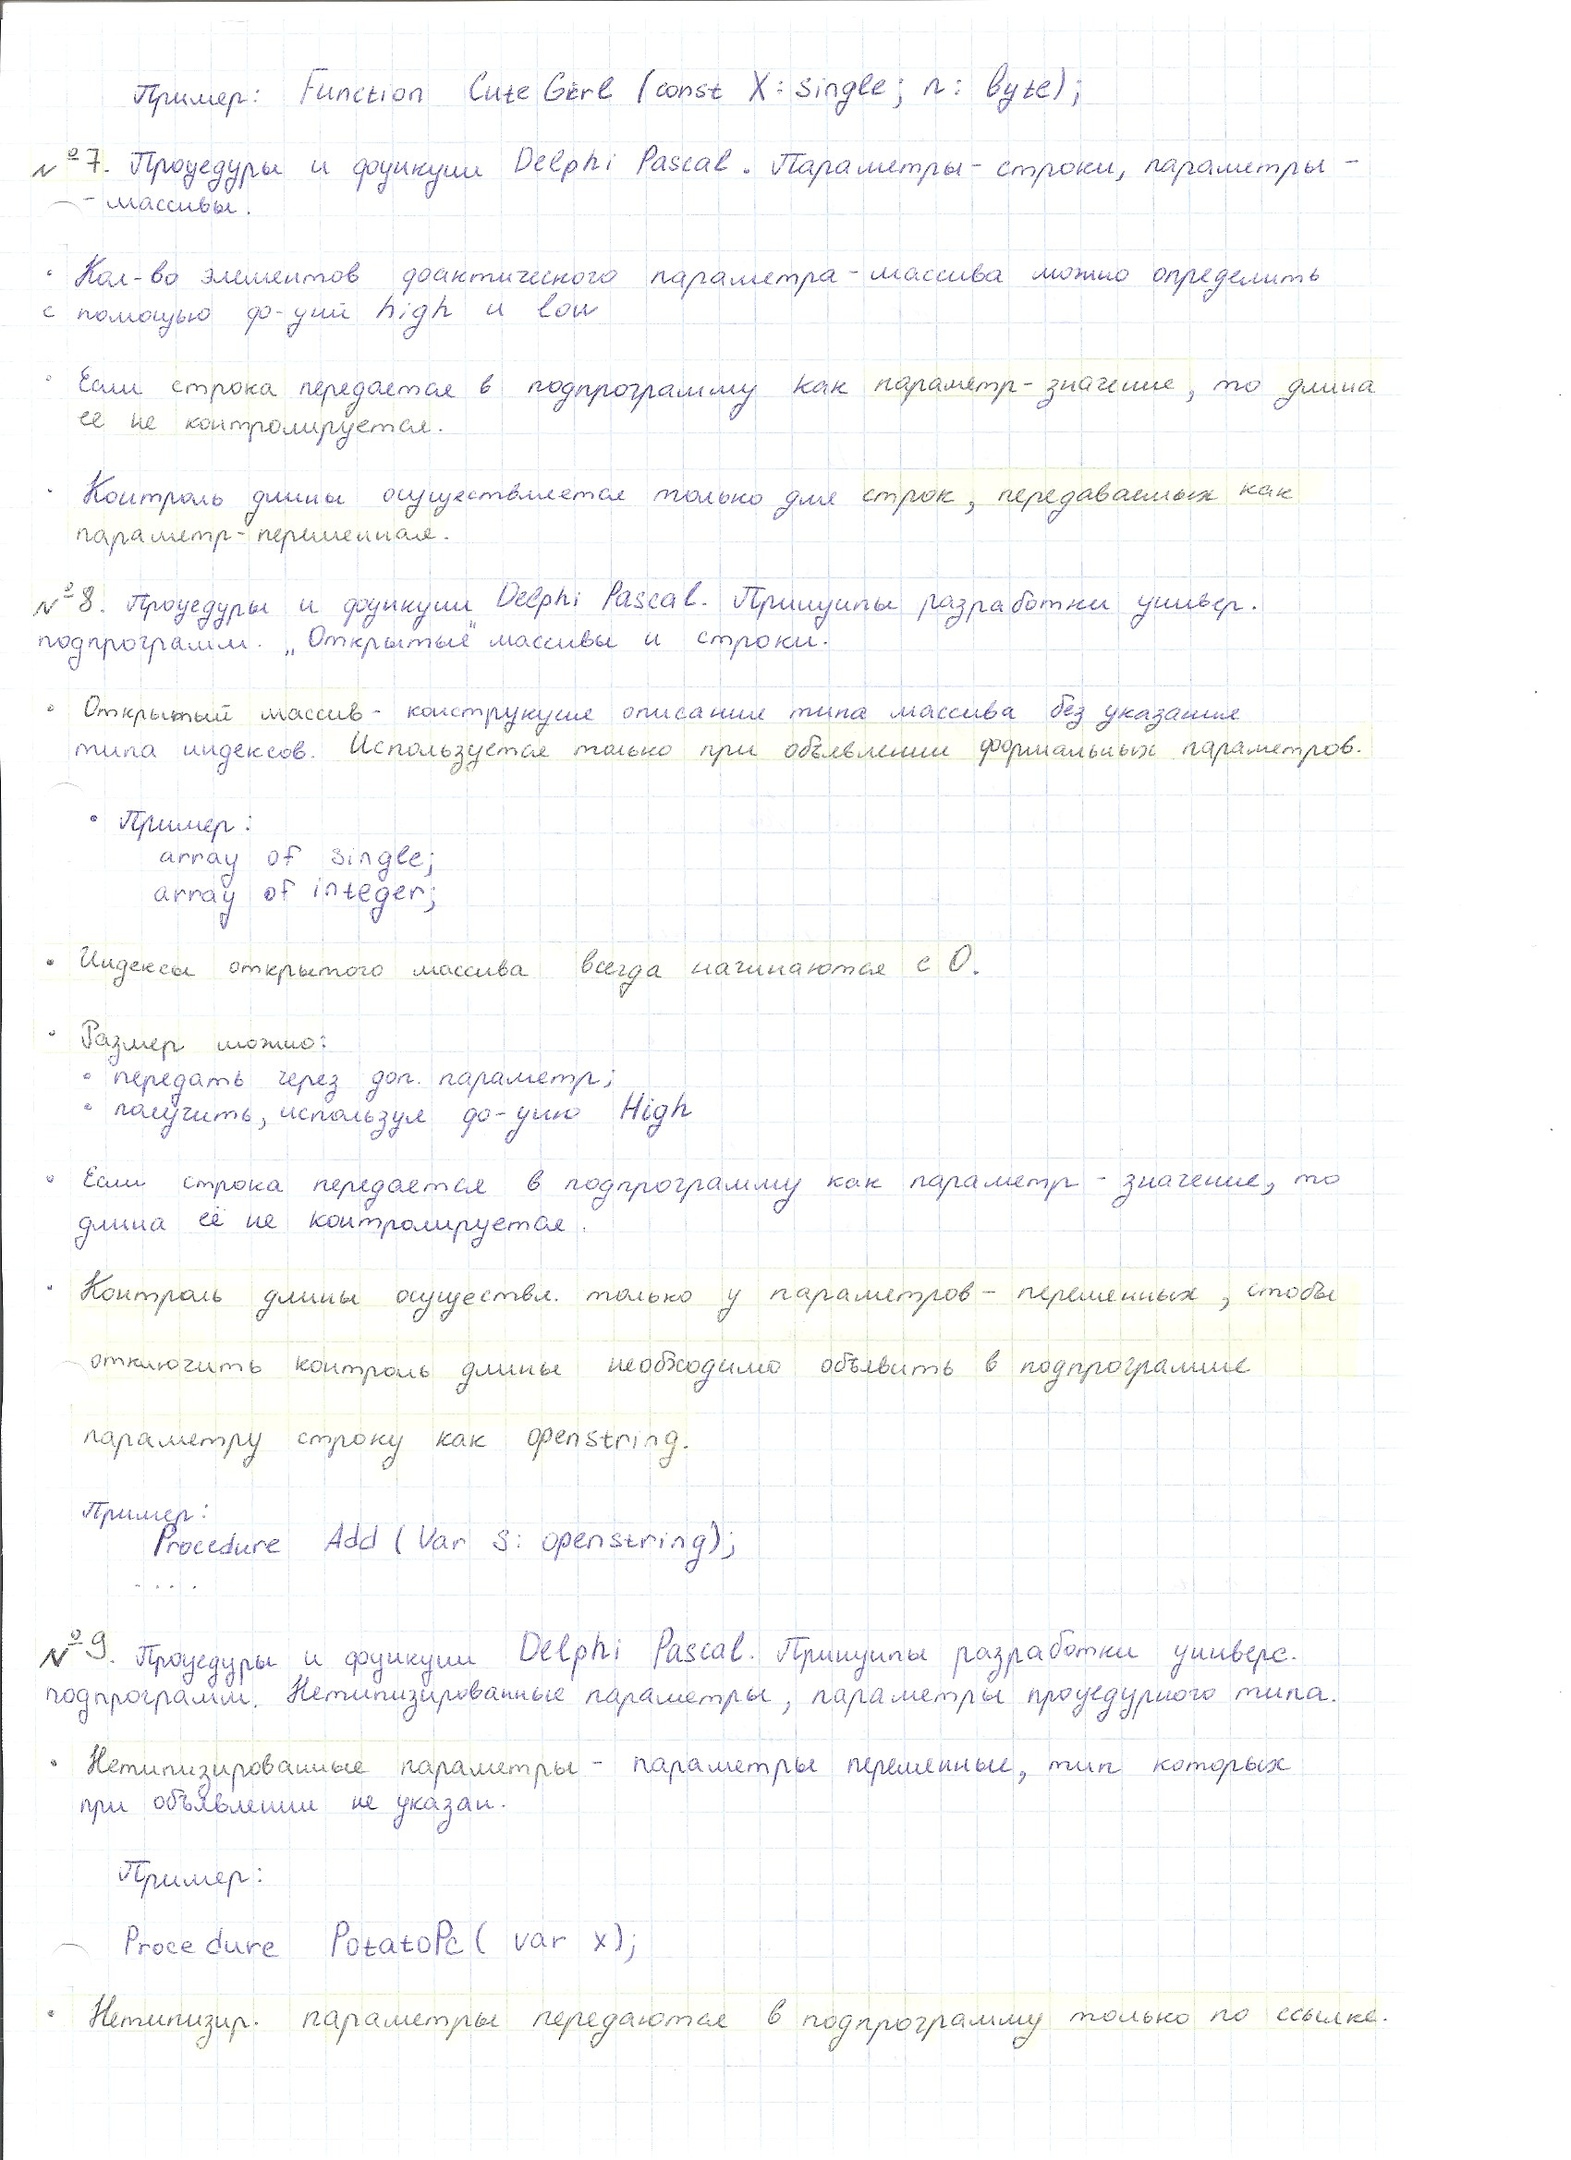 Пример: Function CuteGirl (const X: single; n: byte);
№7. Процедуры и функции Delphi Pascal. Параметры-строки, параметры-
-массивы.
• Кол-во элементов фактического параметра-массива можно определить
с помощью ф-ций high и low
• Если строка передается в подпрограмму как параметр-значение, то длина
ее не контролируется.
• Контроль длины осуществляется только для строк, передаваемых как
параметр-переменная.
№8. Процедуры и функции Delphi Pascal. Принципы разработки универ.
подпрограмм. „Открытые" массивы и строки.
• Открытый массив - конструкция описания типа массива без указания
типа индексов. Используется только при объявлении формальных параметров.
• Пример:
array of single;
array of integer;
• Индексы открытого массива всегда начинаются с 0.
• Размер можно:
• передать через доп. параметр;
• получить, используя ф-цию High
• Если строка передается в подпрограмму как параметр - значение, то
длина её не контролируется.
• Контроль длины осуществл. только у параметров - переменных, стобы
отключить контроль длины необходимо объявить в подпрограмме
параметру строку как openstring.
Пример:
Procedure Add (Var S: openstring);
....
№9. Процедуры и функции Delphi Pascal. Принципы разработки универс.
подпрограмм. Нетипизированные параметры, параметры процедурного типа.
• Нетипизированные параметры - параметры переменные, тип которых
при объявлении не указан.
Пример:
Procedure PotatoPc ( var x);
• Нетипизир. параметры передаются в подпрограмму только по ссылке.